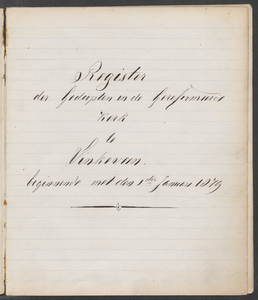 Register
der Gedoopten in de Gereformeerde
Kerk
te
Vinkeveen.
beginnende met den 1ste Januari 1879